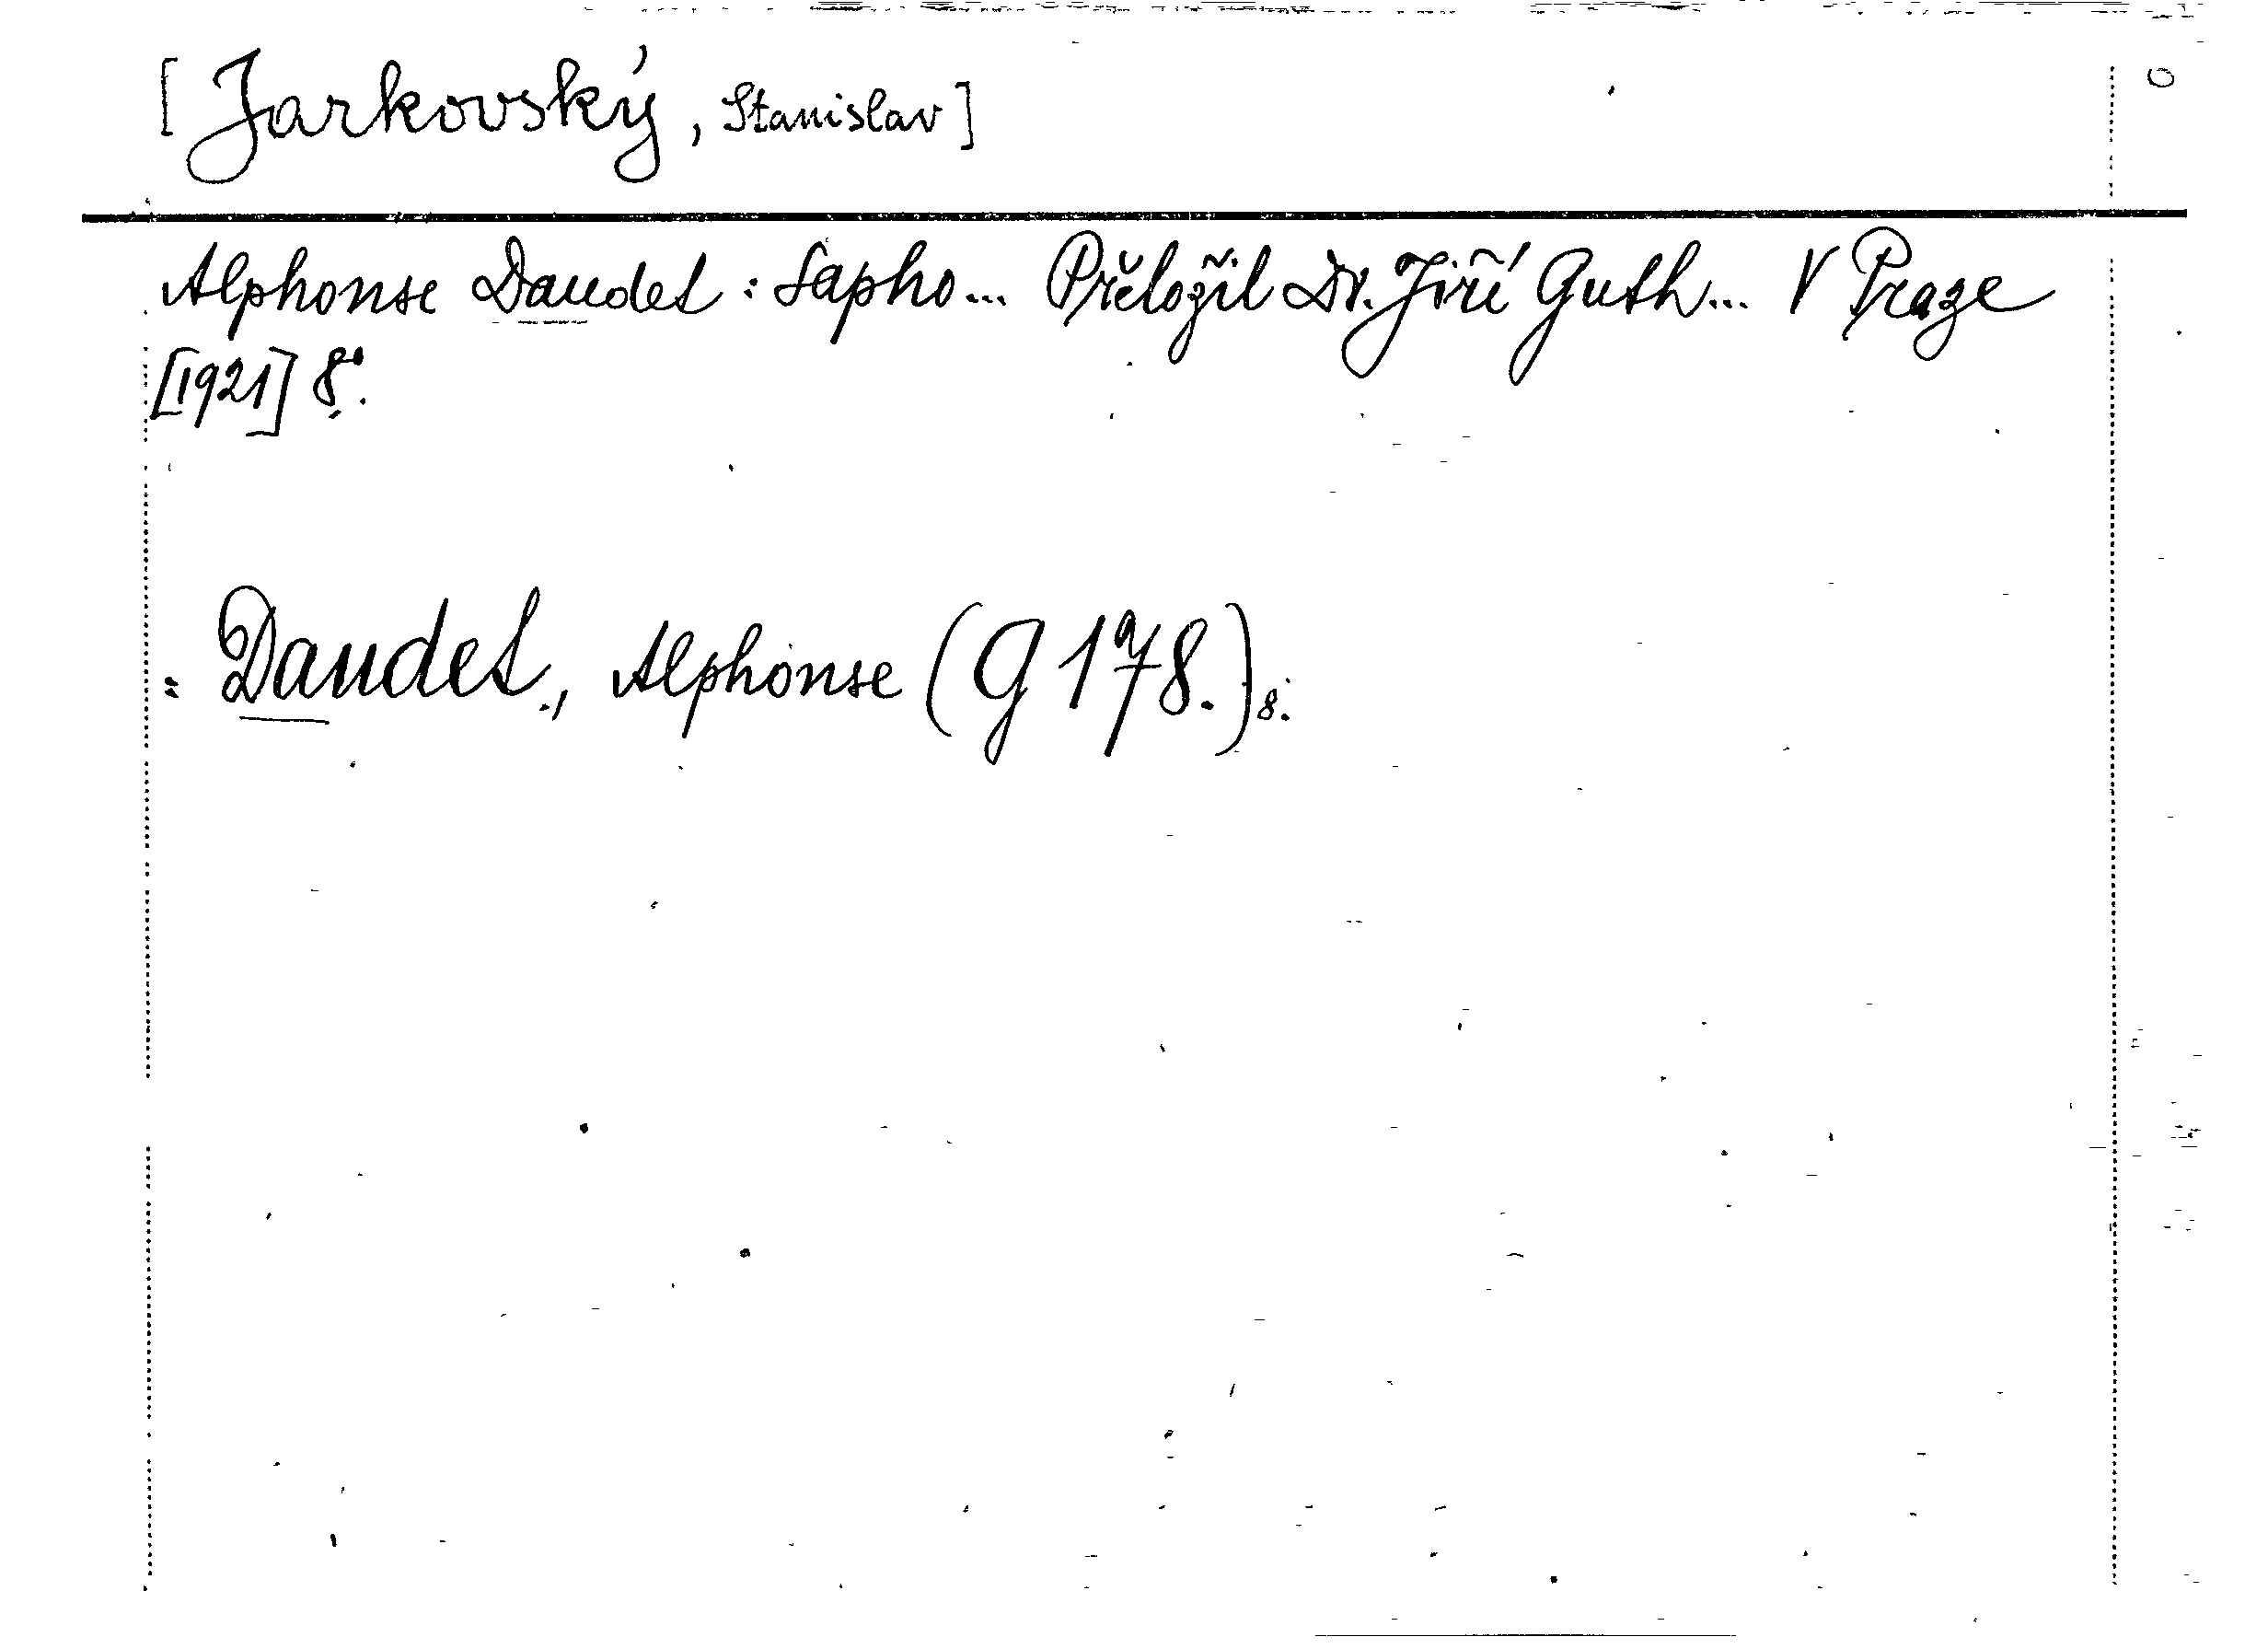 [Jarkovský, Stanislav]
Alphonse Daudet: Sapho... Přeložil Dr. Jiří Guth... V Praze
[1921] 8°.
: Daudet, Alphonse (G 178.) 8.